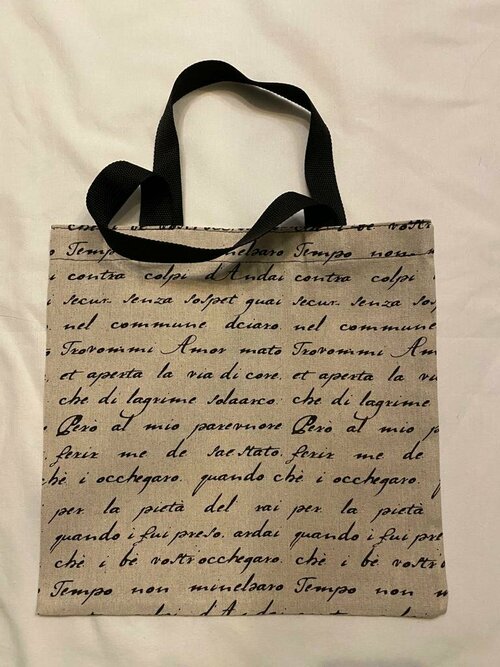 Tempo non
contra colpi d'Andai contra colpi
secur. senza sospet guai secur. senza
nel commune dciaro. nel commune
Trovommi Amor mato Trovommi Am
et aperta la via di core. et aperta la
che di lagrime solaarco. che di lagrime
Però al mio parevnore Però al mio
ferir me de saeStato. ferir me de
chè i occhegaro. quando chè i occhegaro.
per la pietà del rai per la pietà
quando i fui preso. ardai quando i fui pre
chè i bè vostr occhegaro. chè i bè vostr
Tempo non minelsaro Tempo non